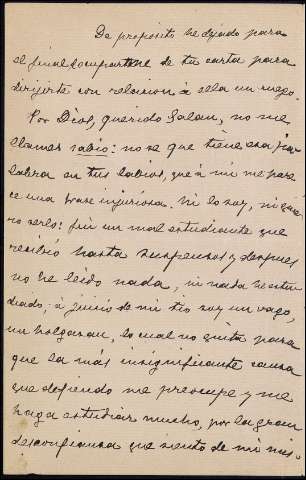 De propósito he dejado para
el final de tu carta para
dirijirte con relacion á ella un ruego.
Por Dios, querido Galan, no me
llames sabio: no se que tiene esa pa-
labra en tus labios, que á mi me pare-
ce una frase injuriosa. Ni lo soy, ni quie-
ro serlo: fuí un mal estudiante que
recibió hasta suspensos y despues
no he leido nada, ni nada he estu-
diado; á juicio de mi tio soy un vago,
un holgazan, lo cual no quita para
que la más insignificante causa
que defiendo me preocupe y me
haga estudiar mucho, por la gran
desconfianza que siento de mi mis-